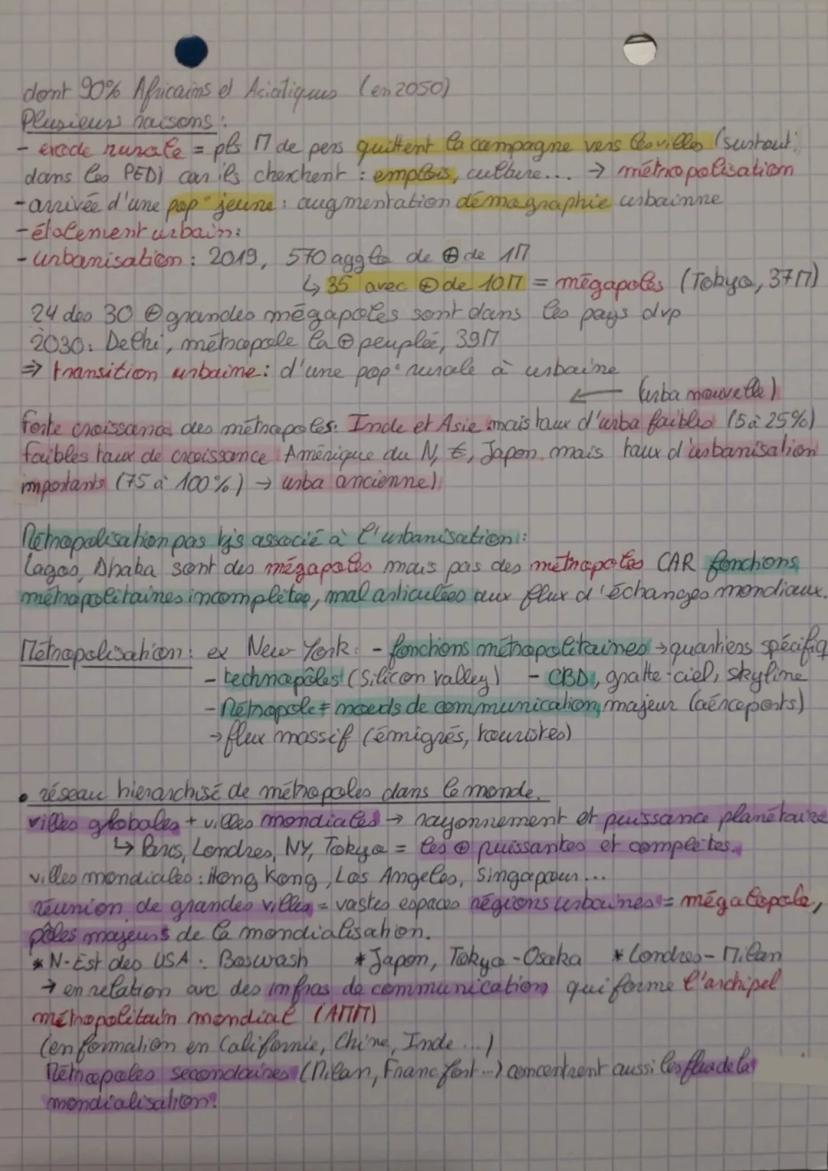 dont 90% Africains et Asiatiques (en 2050)
Plusieurs raisons :
- exode rurale = pls M de pers quittent la campagne vers les villes (surtout
dans les PED) car ils cherchent : emplois, culture... → métropolisation
- arrivée d'une pop° jeune : augmentation démagraphie urbainne
- étalement urbain :
- urbanisation : 2019, 570 aggflo de ⊕ de 1M
↳ 35 avec ⊕ de 10M = mégapoles (Tokyo, 37M)
24 des 30 ⊕ grandes mégapoles sont dans les pays dvp
2030 : Delhi, métropole la ⊕ peuplée, 39M
⇒ transition urbaine : d'une pop° rurale à urbaine
← (urba nouvelle)
forte croissance des métropoles : Inde et Asie mais taux d'urba faibles (15 à 25%)
faibles taux de croissance Amérique du N, €, Japon mais taux d'urbanisation
importants (75 à 100%) → urba ancienne)
Métropolisation pas tjs associé à l'urbanisation :
Lagos, Dhaba sont des mégapoles mais pas des métropoles CAR fonctions
métropolitaines incomplètes, mal articulées aux flux d'échanges mondiaux.
Métropolisation : ex New York : - fonctions métropolitaines → quartiers spécifiq
- technopôles (Silicon valley) - CBD, gratte-ciel, skyline
- Métropole = noeuds de communication, majeur (aéroports)
→ flux massif (émigrés, touristes)
• réseau hierarchisé de métropoles dans le monde.
villes globales + villes mondiales → rayonnement et puissance planétaire
↳ Paris, Londres, NY, Tokyo = les ⊕ puissantes et complètes.
villes mondiales : Hong Kong, Los Angeles, Singapour...
réunion de grandes villes = vastes espaces régions urbaines = mégalopole,
pôles majeurs de la mondialisation.
* N-Est des USA : Boswash * Japon, Tokyo-Osaka * Londres-Milan
→ en relation avc des infras de communication qui forme l'archipel
métropolitain mondial (AMM)
(en formation en Californie, Chine, Inde...)
Métropoles secondaires (Milan, Francfort...) concentrent aussi les flux de la
mondialisation.